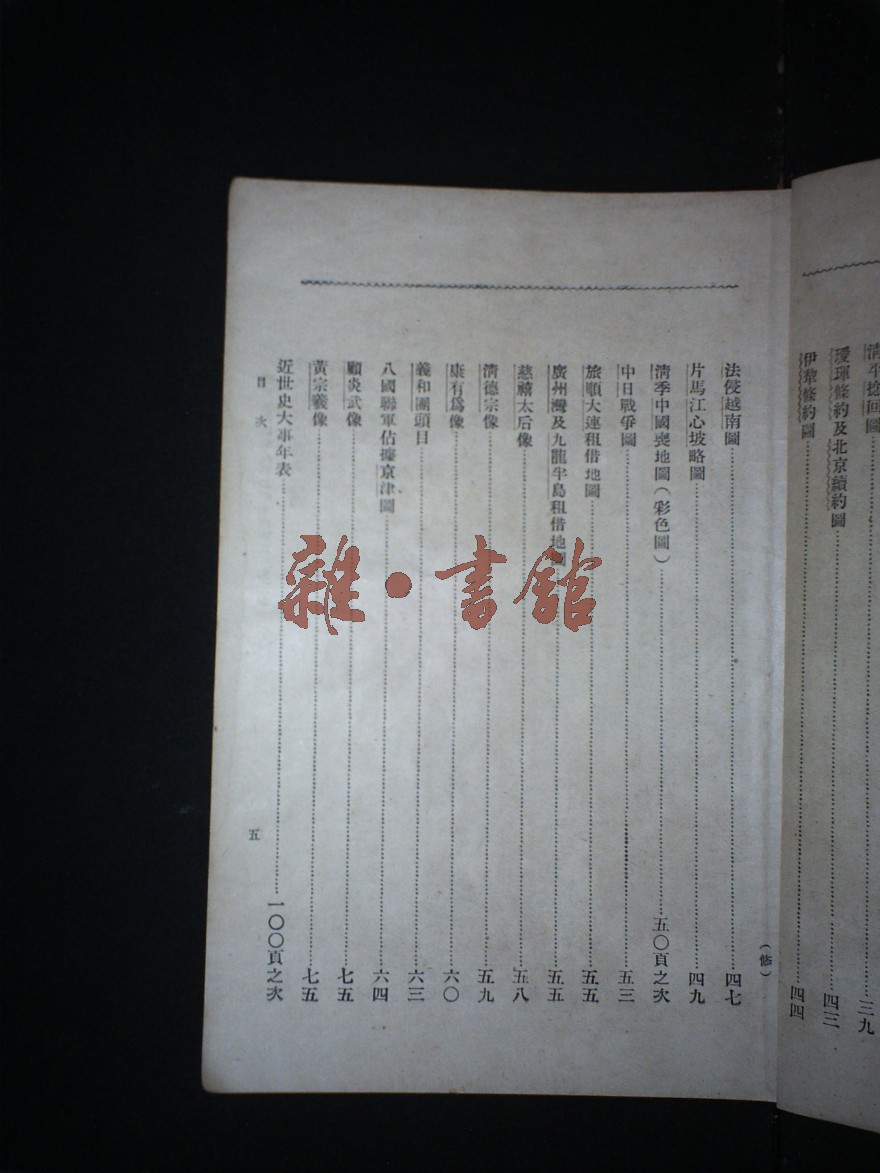 伊犂條約圖……四四
璦琿條約及北京續約圖……四三
三九
(修)
法侵越南圖……四七
片馬江心坡略圖……四九
清季中國喪地圖(彩色圖)……五〇頁之次
中日戰爭圖……五三
旅順大連租借地圖……五五
廣州灣及九龍半島租借地圖……五五
慈禧太后像……五八
清德宗像……五九
康有爲像……六〇
義和團頭目……六三
八國聯軍佔據京津圖……六四
顧炎武像……七五
黃宗羲像……七五
近世史大事年表……一〇〇頁之次
目次
五
雜·書館